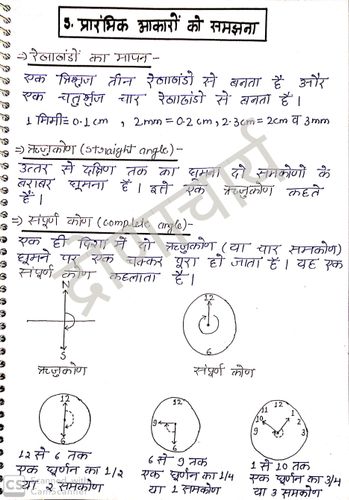 5. प्रारंभिक आकारों को समझना
⇒ रेखाखंडों का मापन -
एक त्रिभुज तीन रेखाखंडों से बनता है और
एक चतुर्भुज चार रेखाखंडो से बनता है।
1 मिमी = 0.1cm , 2mm = 0.2cm , 2.3cm = 2cm व 3mm
⇒ ऋजुकोण (straight angle) -
उत्तर से दक्षिण तक का घूमना दो समकोणों के
बराबर घूमना है। इसे एक ऋजुकोण कहते
हैं।
⇒ संपूर्ण कोण (complete angle) -
एक ही दिशा में दो ऋजुकोण (या चार समकोण)
घूमने पर एक चक्कर पूरा हो जाता है। यह एक
संपूर्ण कोण कहलाता है।
द्रोणाचार्य
N
S
ऋजुकोण
12
6
संपूर्ण कोण
12
6
12 से 6 तक
एक घूर्णन का 1/2
या 2 समकोण
9
6
6 से 9 तक
एक घूर्णन का 1/4
या 1 समकोण
12
1
2
10
1 से 10 तक
एक घूर्णन का 3/4
या 3 समकोण
CS CamScanner